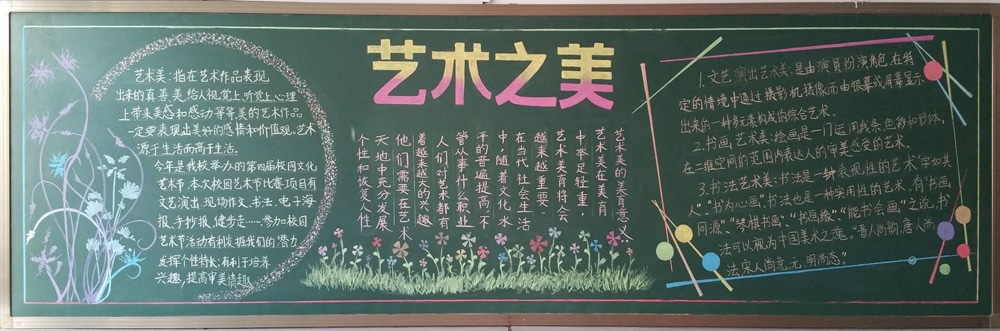 艺术之美
艺术美:指在艺术作品表现
出来的真、善、美,给人视觉上、听觉上、心理
上带来美感和感动等等美的艺术作品
一定要表现出美好的感情和价值观,艺术
源于生活而高于生活。
今年是我校举办的第四届校园文化
艺术节,本次校园艺术节比赛项目有
文艺演出、现场作文、书法、电子海
报、手抄报、健步走……参加校园
艺术节活动有利发掘我们的潜力
发挥个性特长;有利于培养
兴趣,提高审美情趣
艺术美的美育意义:
艺术美在美育
中举足轻重,
艺术美育将会
越来越重要。
在当代社会生活
中,随着文化水
平的普遍提高,不
管从事什么职业
人们对艺术都有
着越来越大的兴趣
他们需要在艺术
天地中充分发展
个性和恢复人性
1.文艺、演出艺术美:是由演员扮演角色,在特
定的情境中通过摄影机摄像而由银幕或屏幕显示
出来的一种多元素构成的综合艺术.
2.书画艺术美:绘画是一门运用线条、色彩和形体,
在二维空间的范围内表达人的审美感受的艺术.
3.书法艺术美:书法是一种表现性的艺术"字如其
人"、"书为心画",书法也是一种实用性的艺术,有"书画
同源"、"琴棋书画"、"书画缘"、"能书会画"之说,书
法可以被为中国美术之魂。"晋人尚韵,唐人尚
法,宋人尚意,元、明尚态."